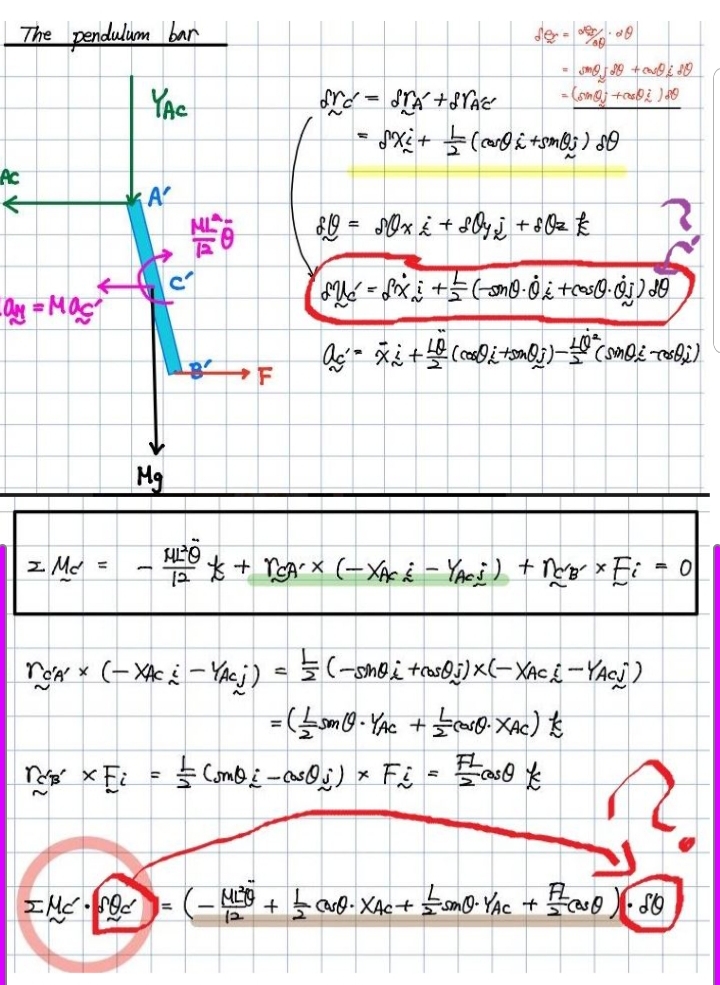 The pendulum bar
Y_AC
AC
A'
ML²/12 θ̈
C'
a_M = M a_C'
B'
F
Mg
= sinθ j δθ + cosθ i δθ
= (sinθ j + cosθ i) δθ
δr_C' = δr_A' + δr_A'C'
= δx i + L/2 (cosθ i + sinθ j) δθ
δθ = δθx i + δθy j + δθz k
?
δv_C' = δẋ i + L/2 (-sinθ·θ̇ i + cosθ·θ̇ j) δθ
a_C' = ẍ i + Lθ̈/2 (cosθ i + sinθ j) - Lθ̇²/2 (sinθ i - cosθ j)
Σ M_C' = - ML²θ̈/12 k + r_C'A' × (-X_AC i - Y_AC j) + r_C'B' × F i = 0
r_C'A' × (-X_AC i - Y_AC j) = L/2 (-sinθ i + cosθ j) × (-X_AC i - Y_AC j)
= (L/2 sinθ · Y_AC + L/2 cosθ · X_AC) k
r_C'B' × F i = L/2 (sinθ i - cosθ j) × F i = FL/2 cosθ k
?
Σ M_C' · δθ_C' = (- ML²θ̈/12 + L/2 cosθ · X_AC + L/2 sinθ · Y_AC + FL/2 cosθ) · δθ